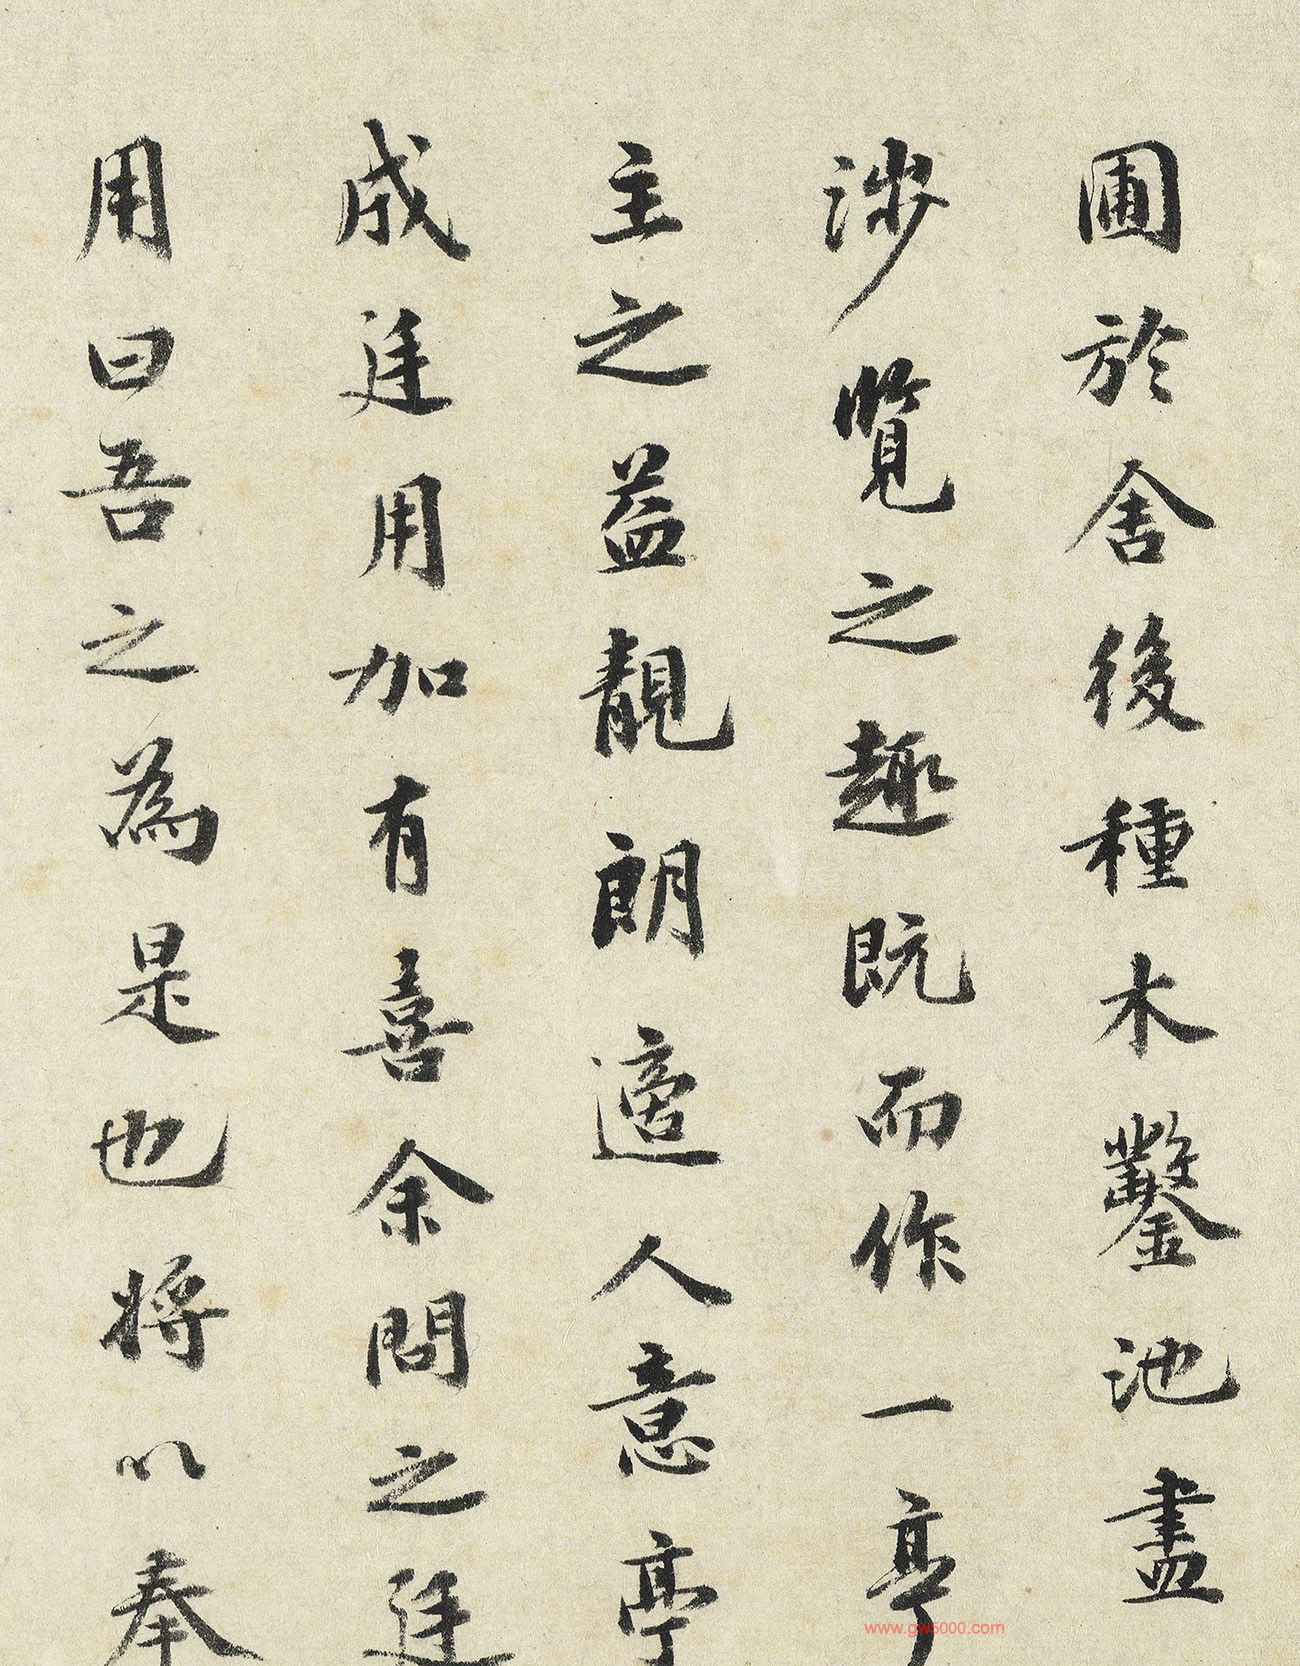 圃於舍後種木鑿池盡
涉覽之趣既而作一亭
主之益靚朗適人意亭
成廷用加有喜余問之廷
用曰吾之為是也將以奉
www.gw5000.com